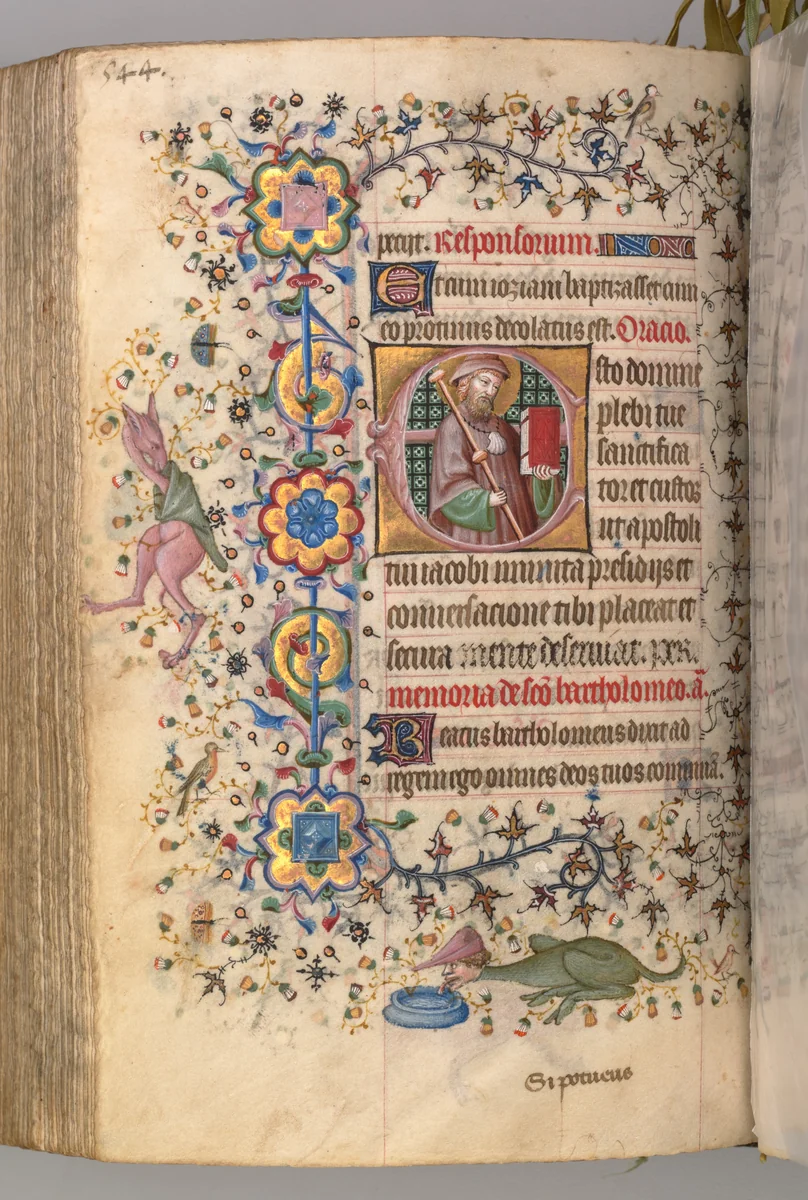 544.
peciit. Responsorium.
Et cum ioziam baptizasset cum
eo protinus decolatus est. Oracio.
Esto domine
plebi tue
sanctifica
tor et custos
ut apostoli
tui iacobi munita presidijs et
conversacione tibi placeat et
secura mente deserviat. per.
memoria de sco bartholomeo. a.
Beatus bartholomeus dixit ad
regem ego omnes deos tuos
Si potueris